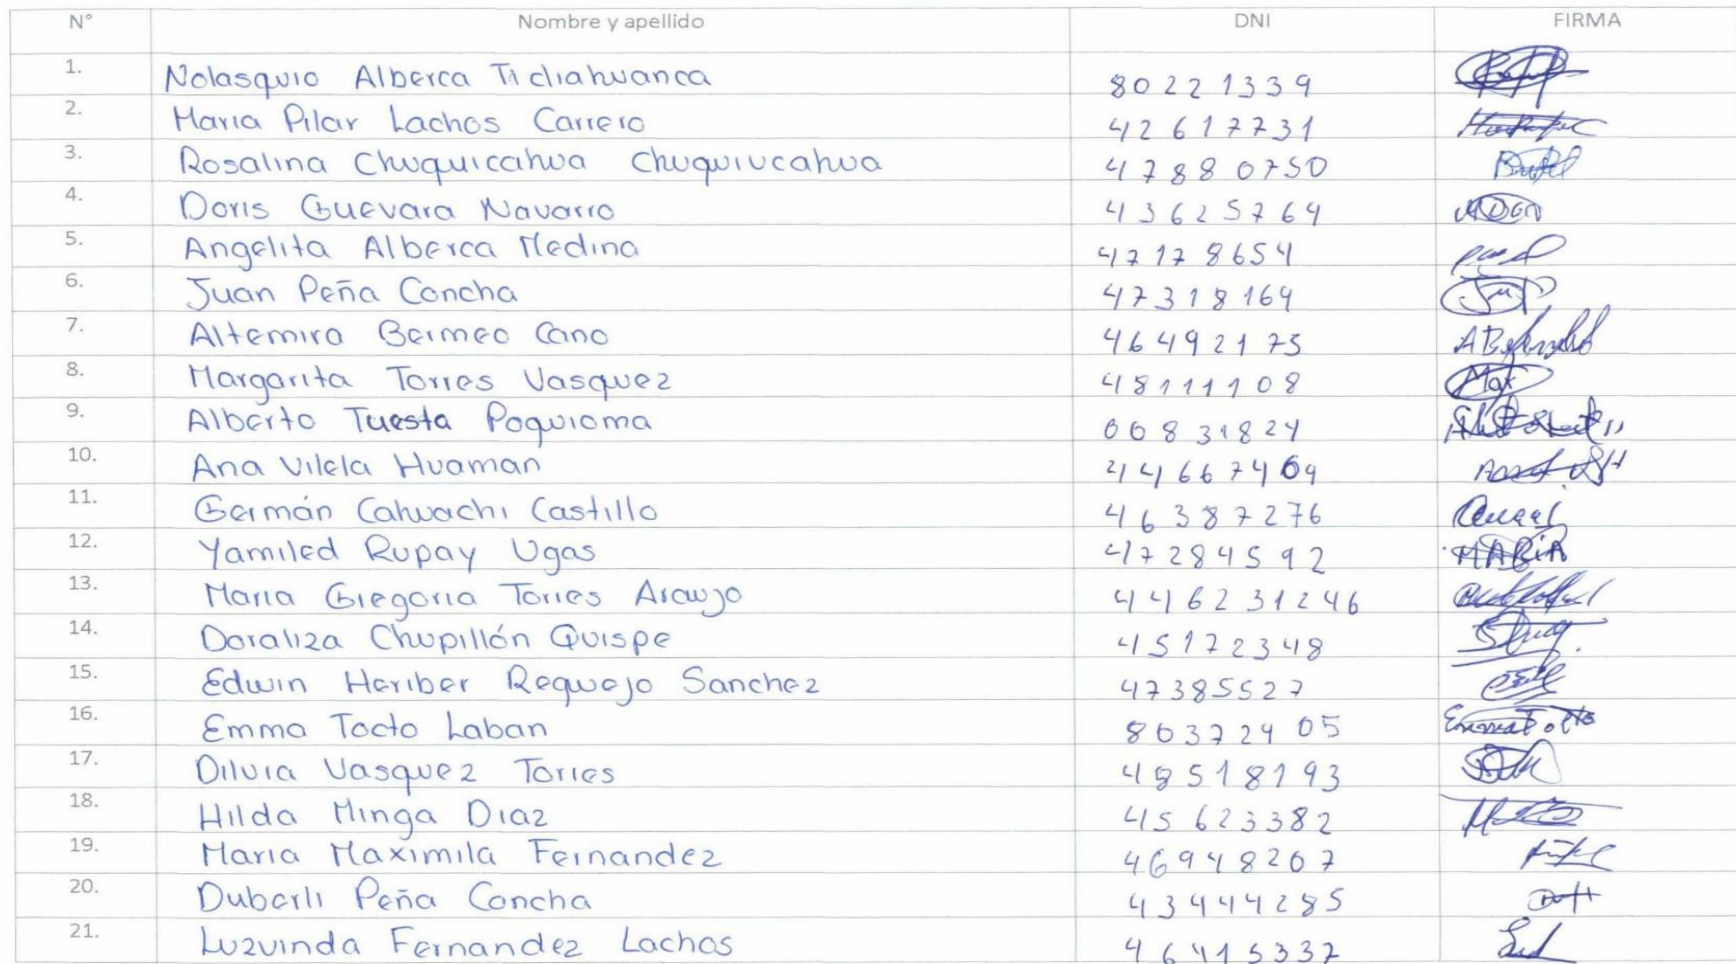 N° Nombre y apellido DNI FIRMA
1. Nolasquio Alberca Ticliahuanca 80221339
2. Maria Pilar Lachos Carrero 42617731
3. Rosalina Chuquicahua Chuquiucahua 47880750
4. Doris Guevara Navarro 43625764
5. Angelita Alberca Medina 47178654
6. Juan Peña Concha 47318164
7. Altemira Bermeo Cano 46492175
8. Margarita Torres Vasquez 48111108
9. Alberto Tuesta Poquioma 00831824
10. Ana Vilela Huaman 44667464
11. Germán Cahuachi Castillo 46387276
12. Yamiled Rupay Ugas 47284592 MARiA
13. Maria Gregoria Torres Araujo 446231246
14. Doraliza Chupillón Quispe 45172348
15. Edwin Heriber Requejo Sanchez 47385527
16. Emma Tocto Laban 80372405
17. Dilvia Vasquez Torres 48518193
18. Hilda Minga Diaz 45623382
19. Maria Maximila Fernandez 46948267
20. Duberli Peña Concha 43444285
21. Luzvinda Fernandez Lachos 46415337